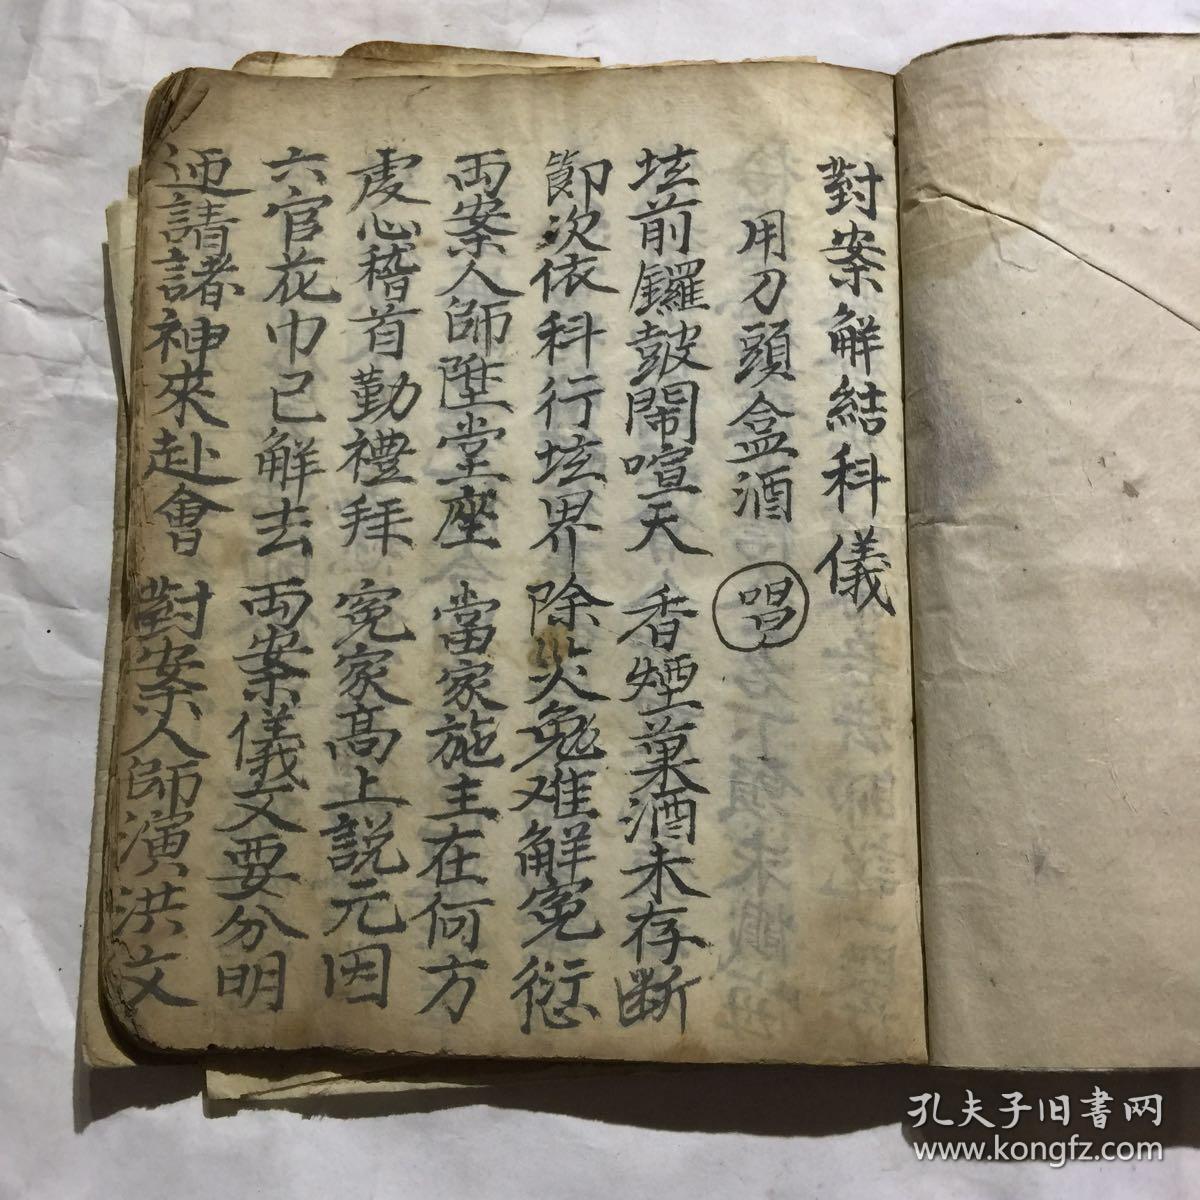 對案解結科儀
用刀頭盒酒 唱
坛前鑼鼓鬧喧天 香煙菓酒未存断
節次依科行坛界 除災免难解冤愆
両案人師陞堂座 當家施主在何方
虔心稽首勤禮拜 冤家髙上説元因
六官花巾已解去 両案儀文要分明
迊請諸神來赴會 對案人師演洪文
孔夫子旧書网
www.kongfz.com